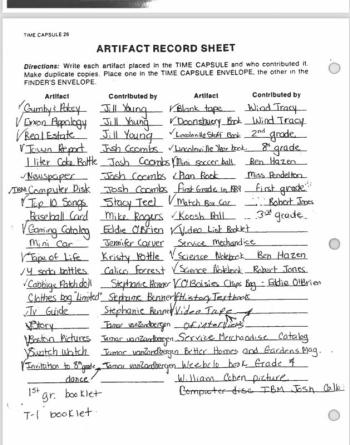 TIME CAPSULE 26
ARTIFACT RECORD SHEET
Directions: Write each artifact placed in the TIME CAPSULE and who contributed it.
Make duplicate copies. Place one in the TIME CAPSULE ENVELOPE, the other in the
FINDER'S ENVELOPE.
Artifact Contributed by Artifact Contributed by
✓Gumby & Pokey Jill Young ✓Blank tape Wind Tracy
✓Dixon Appology Jill Young ✓Doonsbury Book Wind Tracy
✓Real Estate Jill Young ✓Lincolnville Staff Book 2nd grade
✓Town Report Josh Coombs ✓Lincolnville Year book 8th grade
1 liter Coke Bottle Josh Coombs ✓Mini soccer ball Ben Hazen
✓Newspaper Josh Coombs ✓Plan Book Miss Pendelton
✓IBM Computer Disk Josh Coombs First Grade in 1989 First grade
✓Top 10 Songs Stacy Teel ✓Match Box Car Robert Jones
Baseball Card Mike Rogers ✓Koosh Ball 3rd grade
✓Gaming Catalog Eddie O'Brien ✓Video List Rocket
Mini Car Jennifer Carver Service Mechandise
✓Tape of Life Kristy Pottle ✓Science Notebook Ben Hazen
✓4 soda bottles Calico Forrest ✓Science Notebook Robert Jones
✓Cabbige Patch doll Stephanie Bonner ✓O'Boisies Chips Bag - Eddie O'Brien
Clothes bag "Limited" Stephanie Bonner ✓History Textbook
✓Tv Guide Stephanie Bonner ✓Video Tape
✓Story Tamar vanZandbergen of interviews
✓Boston Pictures Tamar vanZandbergen Service Merchandise Catalog
✓Swatch Watch Tamar vanZandbergen Better Homes and Gardens Mag.
✓Invitation to 8th grade dance Tamar vanZandbergen Weebelo book Grade 4
William Cohen picture
1st gr. booklet Computer disc IBM Josh
T-1 booklet